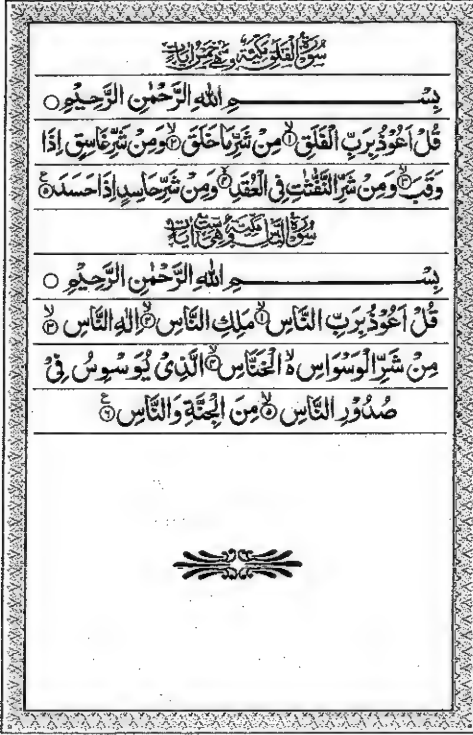 سُوۡرَةُ الۡفَلَقِ مَكِّيَّةٌ وَّهِيَ خَمۡسُ اٰيَاتٍ
بِسۡـــــــــــــــــــمِ اللهِ الرَّحۡمٰنِ الرَّحِيۡمِ ○
قُلۡ اَعُوۡذُ بِرَبِّ الۡفَلَقِ ۙ‏﴿۱﴾ مِنۡ شَرِّ مَا خَلَقَ ۙ‏﴿۲﴾ وَمِنۡ شَرِّ غَاسِقٍ اِذَا
وَقَبَ ۙ‏﴿۳﴾ وَمِنۡ شَرِّ النَّفّٰثٰتِ فِى الۡعُقَدِ ۙ‏﴿۴﴾ وَمِنۡ شَرِّ حَاسِدٍ اِذَا حَسَدَ ‏﴿۵﴾
سُوۡرَةُ النَّاسِ مَكِّيَّةٌ وَّهِيَ سِتُّ اٰيَاتٍ
بِسۡـــــــــــــــــــمِ اللهِ الرَّحۡمٰنِ الرَّحِيۡمِ ○
قُلۡ اَعُوۡذُ بِرَبِّ النَّاسِ ۙ‏﴿۱﴾ مَلِكِ النَّاسِ ۙ‏﴿۲﴾ اِلٰهِ النَّاسِ ۙ‏﴿۳﴾
مِنۡ شَرِّ الۡوَسۡوَاسِ ۙ الۡخَـنَّاسِ ۙ‏﴿۴﴾ الَّذِىۡ يُوَسۡوِسُ فِىۡ
صُدُوۡرِ النَّاسِ ۙ‏﴿۵﴾ مِنَ الۡجِنَّةِ وَالنَّاسِ ‏﴿۶﴾